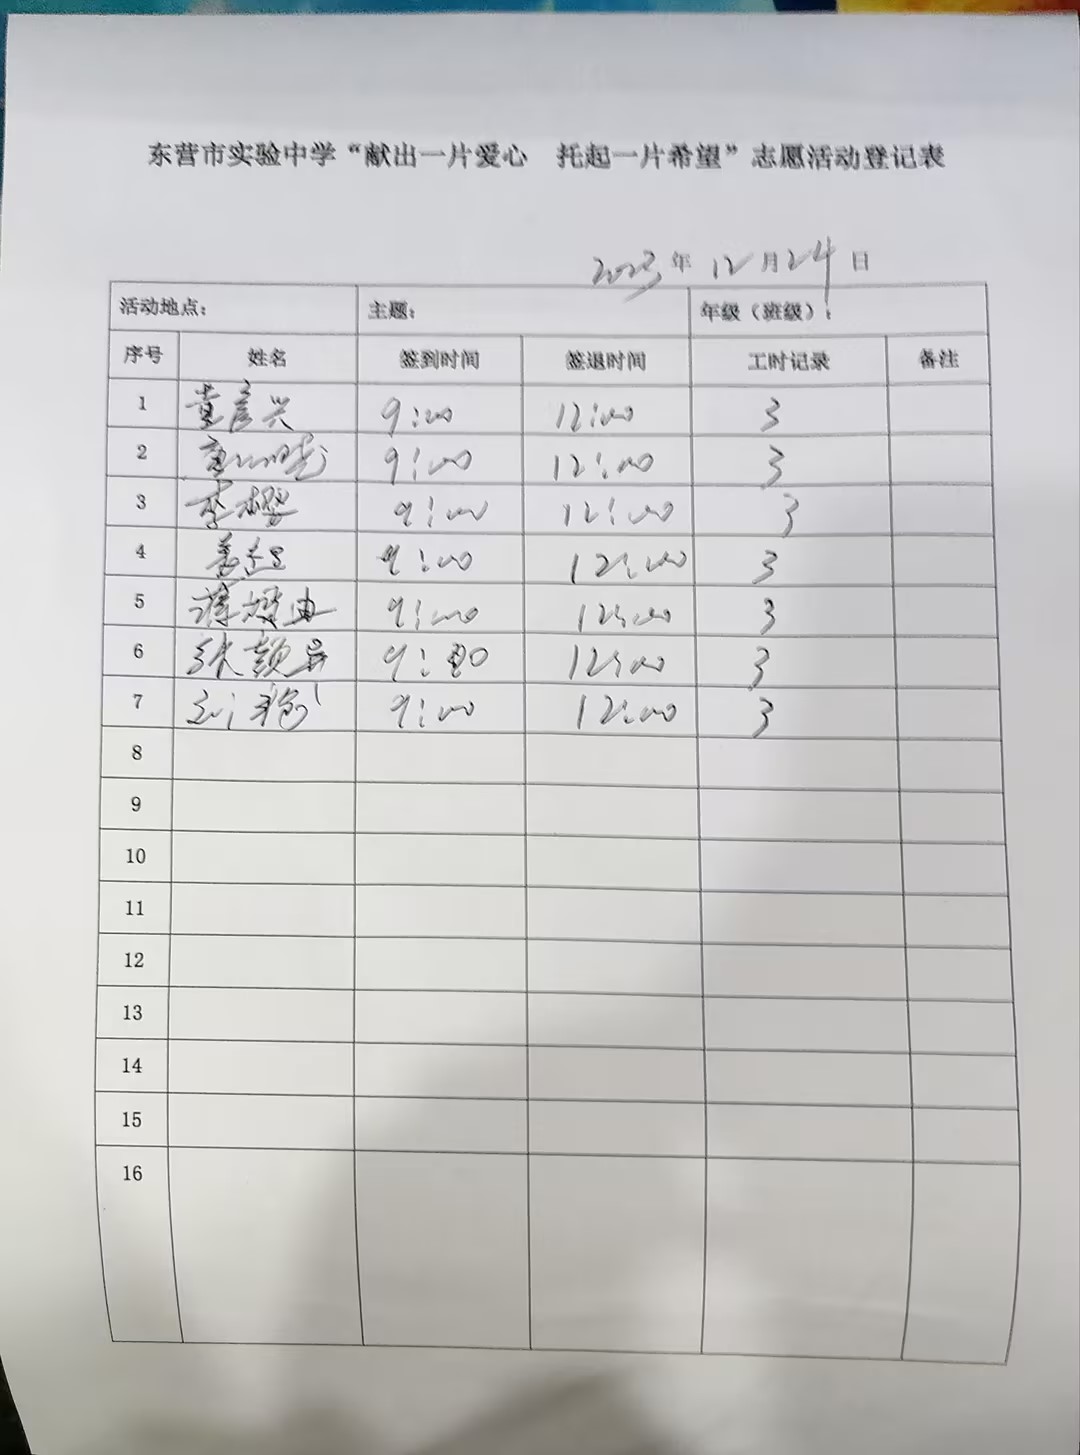 东营市实验中学“献出一片爱心 托起一片希望”志愿活动登记表
2023年12月24日
活动地点: 主题: 年级（班级）:
序号 姓名 签到时间 签退时间 工时记录 备注
1 黄彦兴 9:00 12:00 3
2 9:00 12:00 3
3 李樱 9:00 12:00 3
4 姜超 9:00 12:00 3
5 9:00 12:00 3
6 张颜 9:00 12:00 3
7 9:00 12:00 3
8
9
10
11
12
13
14
15
16